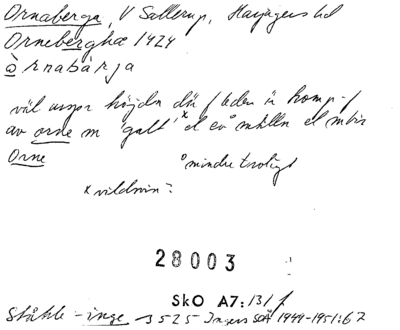 Ornaberga, V Sallerup, Harjagers hd
Orneberghæ 1424
òrnabárja
väl anger höjden där / leden är komp-f
av orne m 'galt' x el ev o mhlln el mbis
Orne
o mindre troligt
x vildsvin?
28003
SkO A7: 13/7
Ståhle -inge 3525 Ingers SOÅ 1949-1951:67